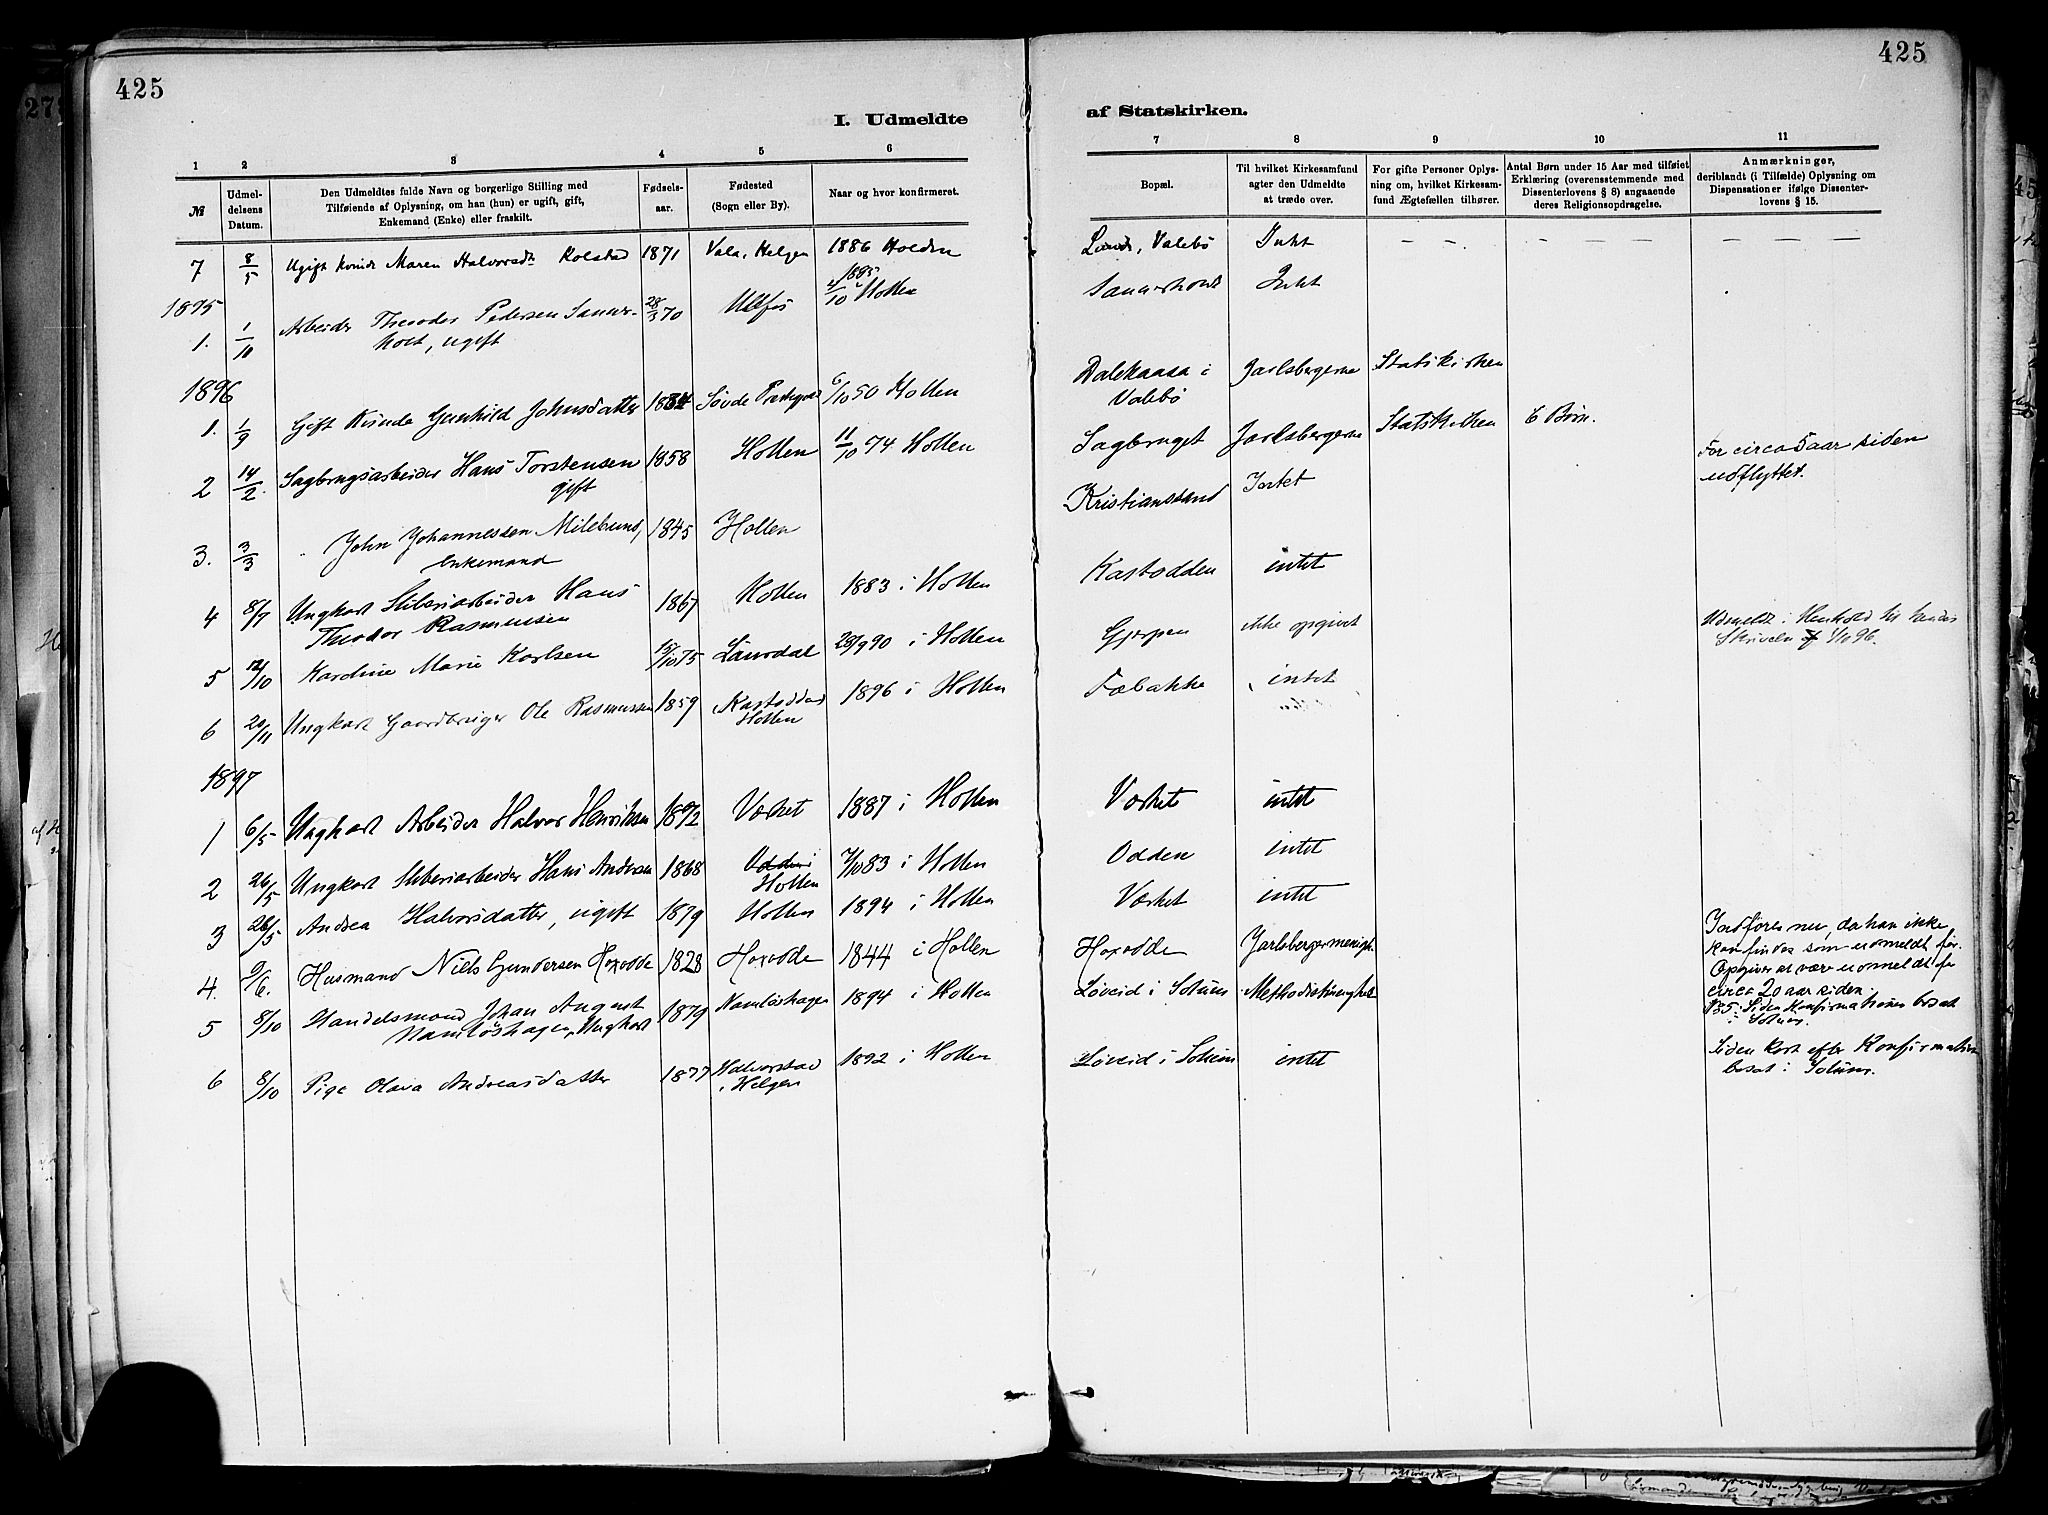 425
425
I. Udmeldte
af Statskirken.
1 2 3 4 5 6 7 8 9 10 11
№
Udmel-
delsens
Datum.
Den Udmeldtes fulde Navn og borgerlige Stilling med
Tilføiende af Oplysning, om han (hun) er ugift, gift,
Enkemand (Enke) eller fraskilt.
Fødsels-
aar.
Fødested
(Sogn eller By).
Naar og hvor konfirmeret.
Bopæl.
Til hvilket Kirkesamfund
agter den Udmeldte
at træde over.
For gifte Personer Oplys-
ning om, hvilket Kirkesam-
fund Ægtefællen tilhører.
Antal Børn under 15 Aar med tilføiet
Erklæring (overensstemmende med
Dissenterlovens § 8) angaaende
deres Religionsopdragelse.
Anmærkninger,
deriblandt (i Tilfælde) Oplysning om
Dispensationer ifølge Dissenter-
lovens § 15.
7 8/5 Ugift Kvinde Maren Halvorsdt Kolstad 1871 Vala, Helgen 1886 Holden Valebö Intet — — — —
1895
1. 1/10 Arbeider Theodor Pedersen Sanner-
holt, ugift 28/3 70 Ulefos 4/10 1885 Hollen Intet
1896
1. 1/9 Gift Kvinde Gunhild Johnsdatter Søvde 6/10 50 Hollen Dalekaasa i
Valebö Jarlsbergerne Statskirken
2 14/2. Sagbrugsarbeider Hans Torstensen
gift 1858 Hollen 11/10 74 Hollen Sagbruget Jarlsbergerne Statskirken 6 Børn. For circa 5 aar siden
udflyttet.
3. 3/3 John Johannessen Milebuns,
Enkemand 1845 Hollen Kristianssand Intet
4 8/9 Ungkarl Sliberiarbeider Hans
Theodor Rasmussen 1867 Hollen 1883 i Hollen Kastodden intet
5 12/10 Kardine Marie Karlsen 15/10 75 Laurdal 28/9 90 i Hollen Gjerpen ikke opgivet Udmeldt i Henhold til
Skrivelse af 1/10 96.
6 20/11 Ungkarl Gaardbruger Ole Rasmussen 1859 Kastodden
Hollen 1896 i Hollen Fæbakke intet
1897
1 6/5 Ungkarl Arbeider Halvor Henriksen 1872 Værket 1887 i Hollen Værket intet
2 26/5 Ungkarl Sliberiarbeider Hans Andersen 1868 Odden i
Hollen 7/10 83 i Hollen Odden intet
3 26/5 Andrea Halvorsdatter, ugift 1879 Hollen 1894 i Hollen Værket intet
4. 9/6. Husmand Niels Gundersen Hoxodde 1828 Hoxodde 1844 i Hollen Hoxodde Jarlsbergermenigh. Indføres nu, da han ikke
kan findes som udmeldt før.
Opgiver at være udmeldt for
circa 20 aar siden.
5 8/10 Handelsmand Johan August
Namløshagen, Ungkarl 1879 Namløshagen 1894 i Hollen Løveid i Solum Methodistmenighed № 5. Siden Konfirmationen bosat
i Solum.
6 8/10 Pige Olava Andreasdatter 1877 Halvorstad
i Helgen 1892 i Hollen Løveid i Solum intet Siden kort efter Konfirmation
bosat i Solum.